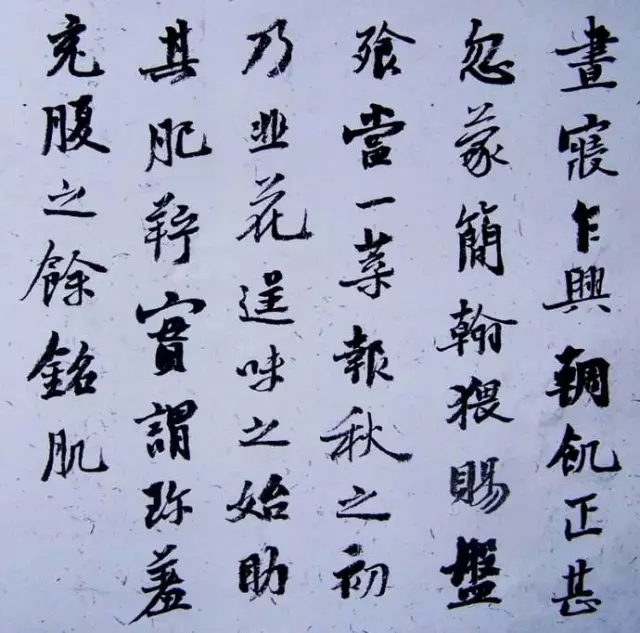 晝寢乍興輖飢正甚
忽蒙簡翰猥賜盤
飧當一葉報秋之初
乃韭花逞味之始助
其肥羜實謂珍羞
充腹之餘銘肌